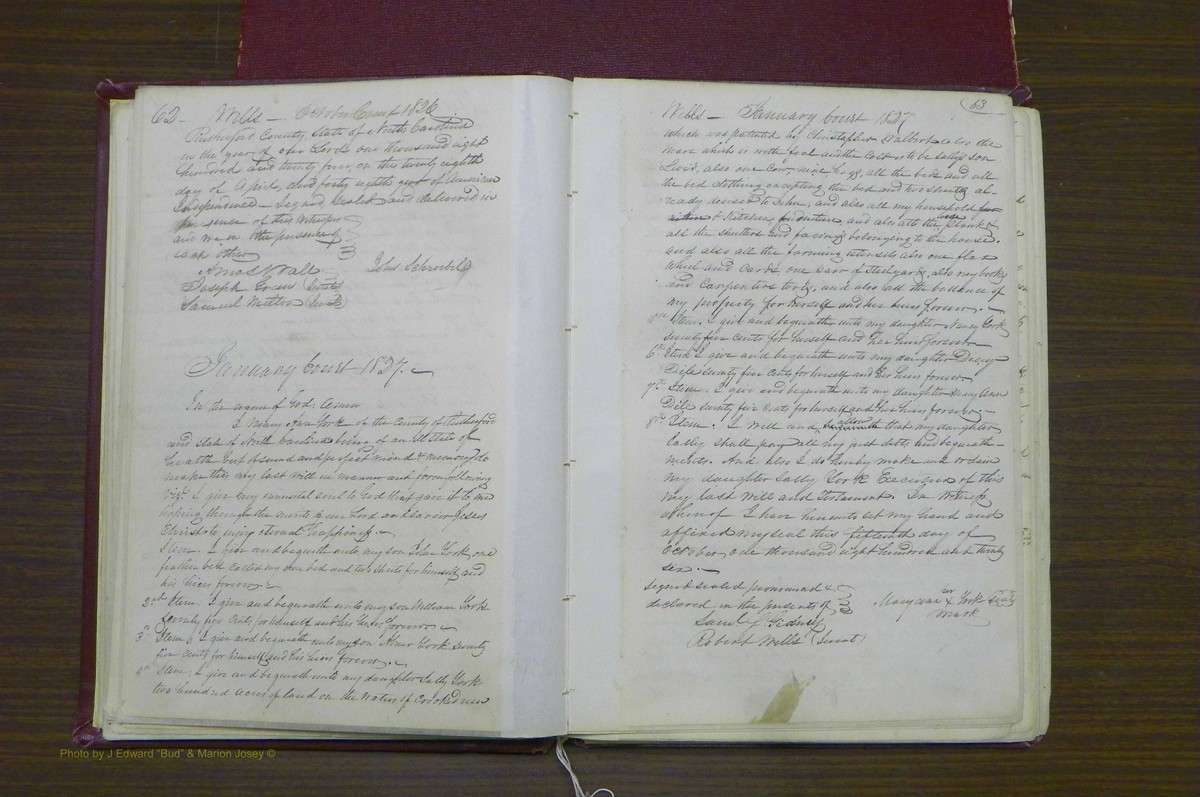 62 - Wills - October Court 1826
Rutherford County State of North Carolina
in the year of our Lord one thousand eight
hundred and twenty four, on the twenty eighth
day of April, and forty eighth year of American
Independence - Signed Sealed and delivered in
the presence of this
are we in the presence of
each other
Amos Wall
Joseph Green
Samuel
January Court 1827.
In the name of God: Amen
I Mary ann York of the County of Rutherford
and state of North Carolina being of an ill state of
health but of sound and perfect mind & memory do
make this my last will in manner and form following
Viz. I give my immortal soul to God that gave it to me
hoping through the merits of our Lord and Savior Jesus
Christ to enjoy eternal happiness. -
Item. I give and bequeath unto my son John York, one
feather bed called my own bed and two sheets for himself and
his heirs forever. -
2nd Item. I give and bequeath unto my son William York
seventy five cents for himself and his heirs forever -
3d. Item. I give and bequeath unto my son York seventy
five cents for himself and his heirs forever. -
4th Item. I give and bequeath unto my daughter Sally York
two hundred acres of land on the waters of Crooked run
63
Wills - January Court 1827
which was patented by Christopher Walbert also the
mare which is with foal another cost to be Sally's son
Lewis, also one Cow, nine hogs, all the beds and all
the bed clothing excepting the bed and two sheets al-
ready devised to John, and also all my household fur-
niture & Kitchen furniture and also all the loose planks
all the shutters and facings belonging to the house.
and also all the farming utensils also one flax
wheel and cards one pair of Steelyards, also my books
and Carpenters tools, and also all the ballance of
my property for herself and her heirs forever. -
Item. I give and bequeath unto my daughter Nancy York
seventy five cents for herself and her heirs forever
6th Item I give and bequeath unto my daughter Dicey
Dile seventy five cents for herself and her heirs forever
7th Item. I give and bequeath unto my daughter Mary Ann
Dile seventy five cents for herself and her heirs forever -
8th Item. I Will and that my daughter
Sally shall pay all my just debts and bequeath-
ments. And also I do hereby make and ordain
my daughter Sally York Executor of this
my last will and Testament. In witness
whereof I have hereunto set my hand and
affixed my seal this fifteenth day of
October one thousand eight hundred and twenty
six. -
signed sealed pronounced &
declared in the presents of
Saml x Gidney
Robert Wells (Jurat)
Mary ann her x York
mark
Photo by J Edward "Bud" & Marion Josey ©